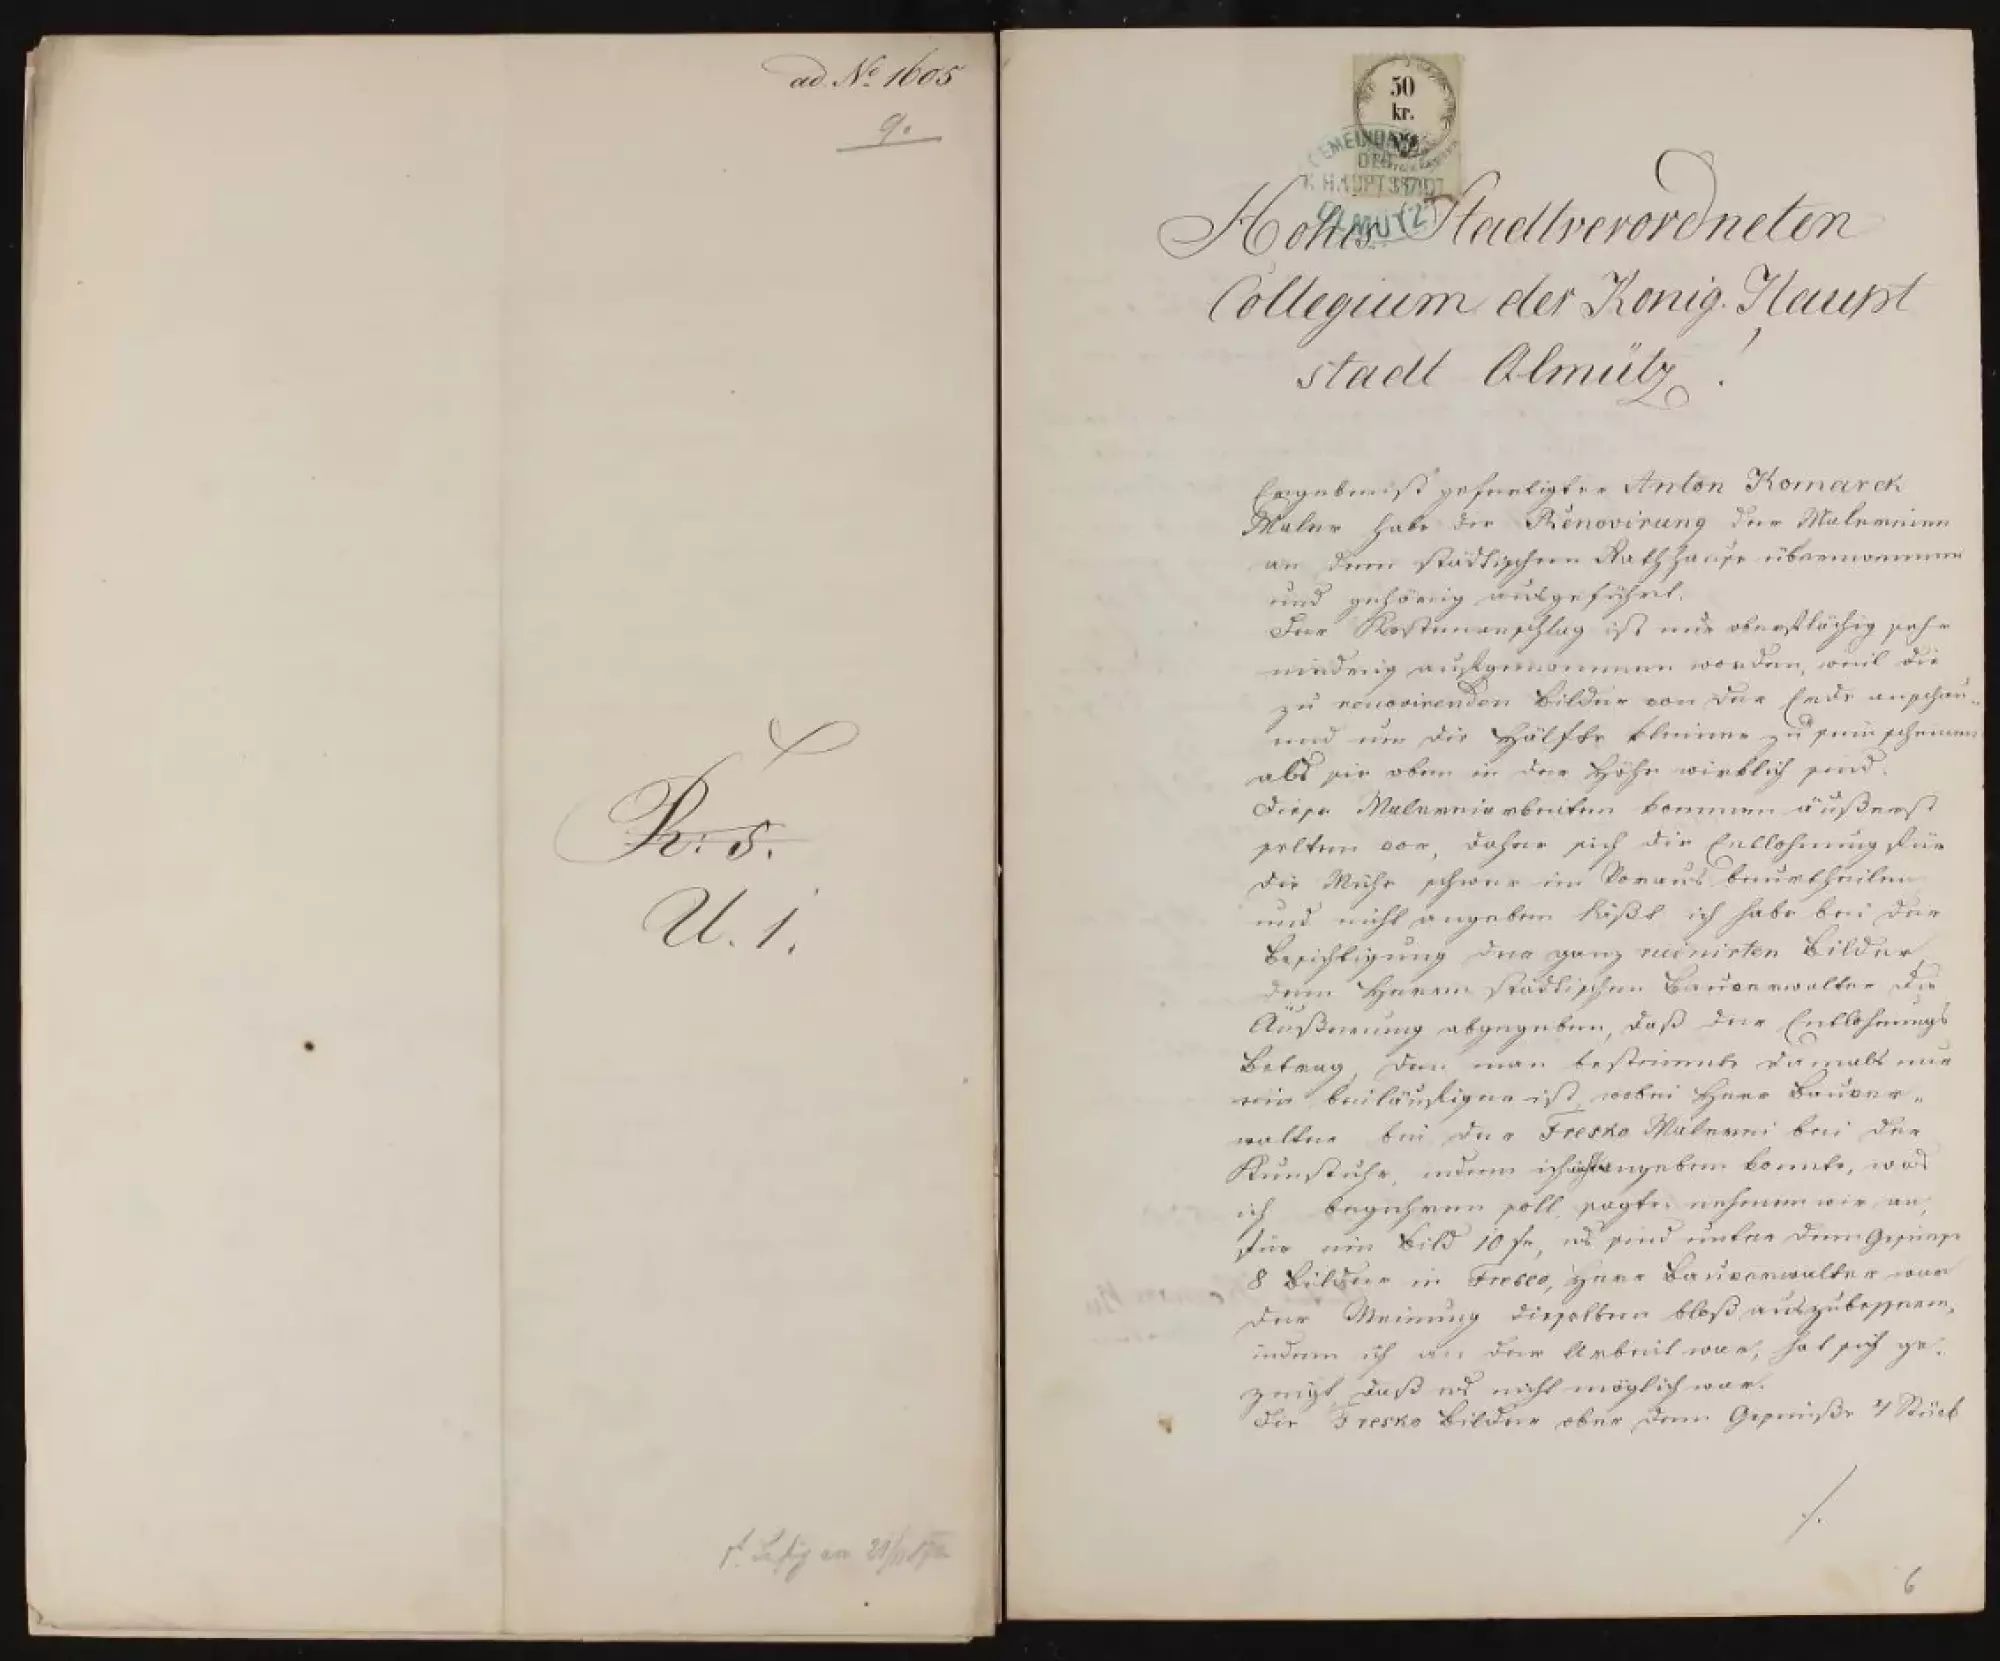 ad. No. 1605
9.
R: 5.
U. 1.
50
kr.
GEMEINDE
DER
K. HAUPTSTADT
OLMÜTZ
Hohes Stadtverordneten
Collegium der König. Haupt
stadt Olmütz !
Ergebenst gefertigter Anton Komarek
Maler habe die Renovirung der Malereien
an dem städtischen Rathhause übernommen
und gehörig ausgeführt.
Der Kostenanschlag ist nur oberflächig sehr
niedrig aufgenommen worden, weil die
zu renovirenden Bilder von der Erde anschau-
und um die Hälfte kleiner zu sein scheinen
als sie oben in der Höhe wirklich sind.
Diese Malereiarbeiten kommen äußerst
selten vor, daher sich die Entlohnung für
die Mühe schwer im Voraus beurtheilen
und nicht angeben läßt ich habe bei der
Besichtigung der ganz ruinirten Bilder,
dem Herrn städtischen Bauverwalter die
Äußerung abgegeben, daß der Entlohnungs
Betrag, den man bestimmte damals nur
ein beiläufiger ist, wobei Herr Bauver-
walter bei der Fresko Malerei bei der
Kunstuhr, indem ich nicht angeben konnte, was
ich begehren soll, sagte: nehmen wir an,
für ein Bild 10 fr, es sind unter dem Gesimse
8 Bilder in Fresco, Herr Bauverwalter war
der Meinung dieselben bloß auszubessern,
indem ich an der Arbeit war, hat sich ge-
zeigt, daß es nicht möglich war.
Die Fresko Bilder ober dem Gesimße Stück
./.
6